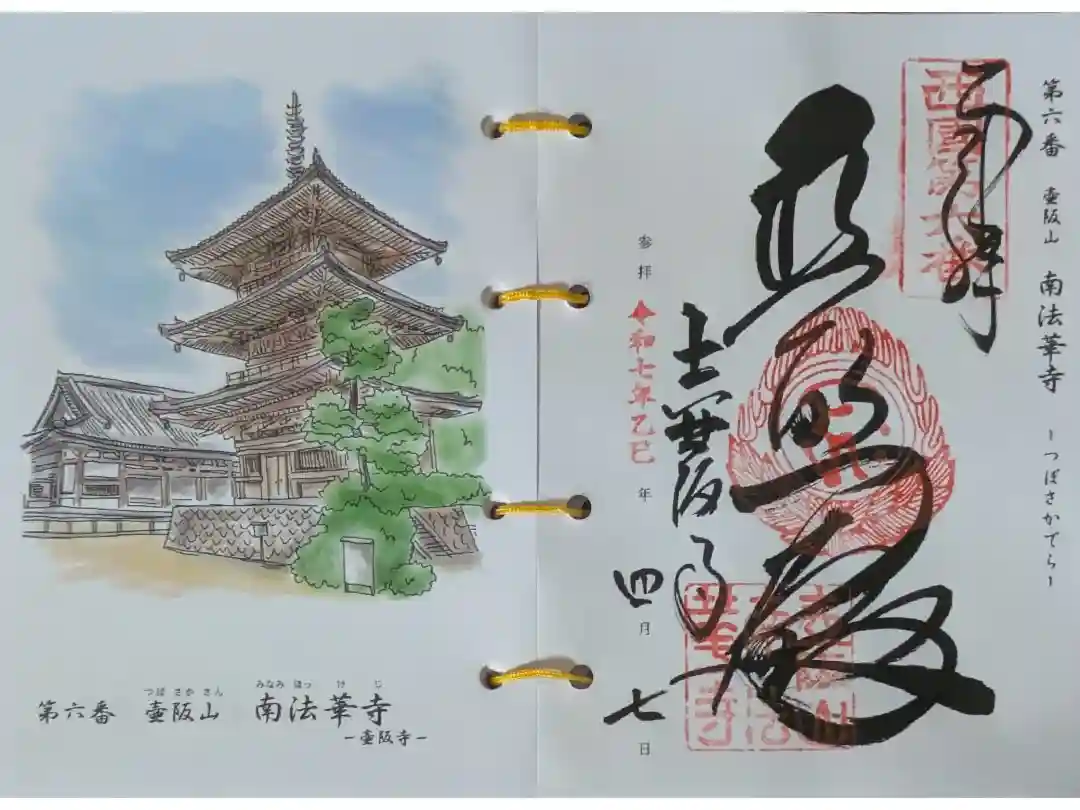 つぼ さか さん みなみ ほっ け じ
第六番 壷阪山 南法華寺
－壷阪寺－
第六番 壷阪山 南法華寺 －つぼさかでら－
奉拝
西國第六番
普照殿
壷阪寺
参拝 令和七年乙巳 年 四月 七 日